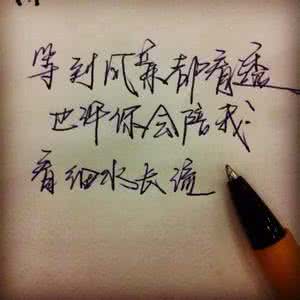 等到风景都看透
也许你会陪我
看细水长流